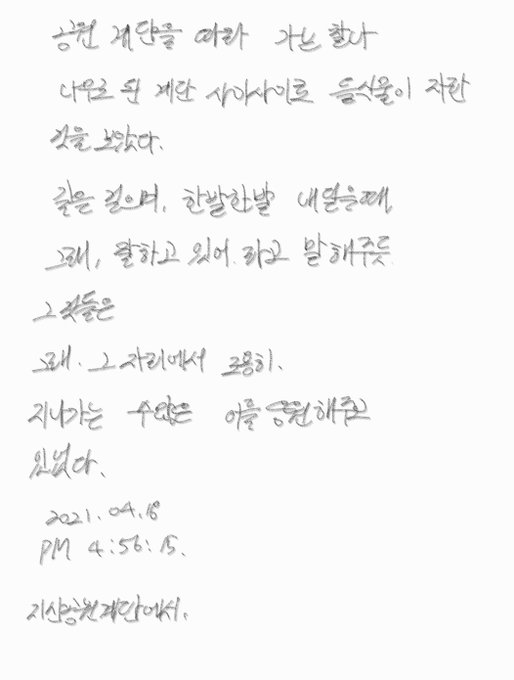 공원 계단을 따라 가는 찰나
나무로 된 계단 사이사이로 들식물이 자란
것을 보았다.
길을 걸으며, 한발한발 내딛을때,
그래, 잘하고 있어. 라고 말해주듯.
그것들은
그래. 그 자리에서 조용히.
지나가는 수많은 이를 응원해주고
있었다.
2021. 04. 18
PM 4:56:15.
지산공원계단에서.